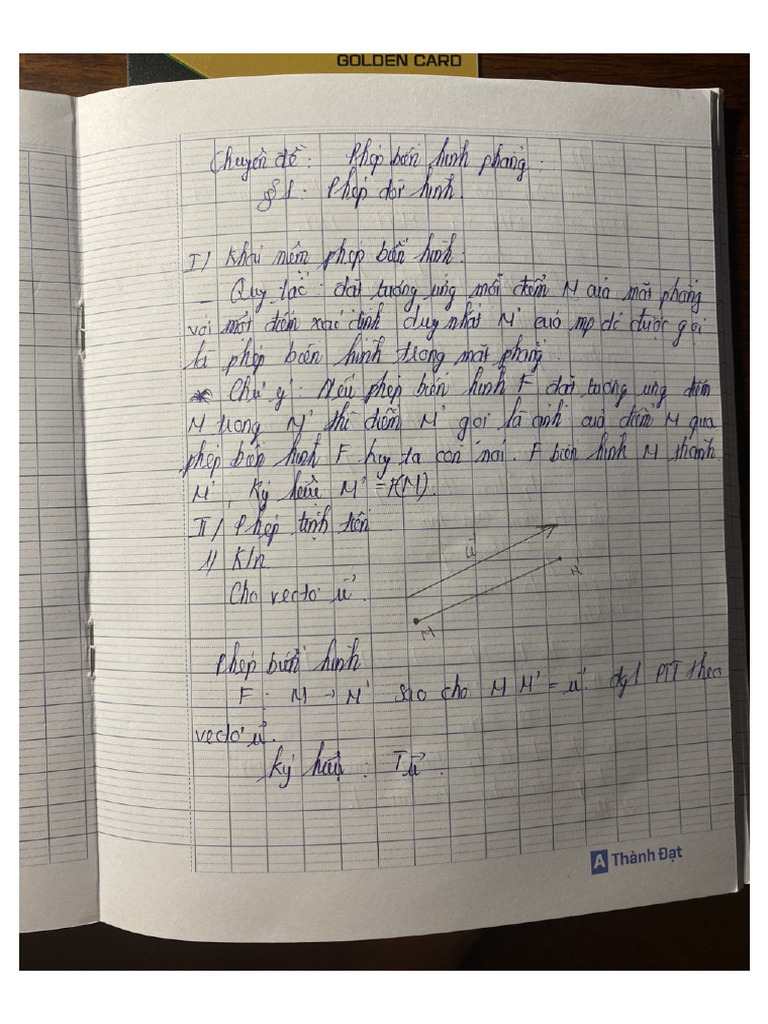 GOLDEN CARD
Chuyên đề: Phép biến hình phẳng.
§1: Phép dời hình.
I/ Khái niệm phép biến hình:
- Quy tắc: đặt tương ứng mỗi điểm M của mặt phẳng
với một điểm xác định duy nhất M' của mp đó được gọi
là phép biến hình trong mặt phẳng.
* Chú ý: Nếu phép biến hình F đặt tương ứng điểm
M trong M' thì điểm M' gọi là ảnh của điểm M qua
phép biến hình F hay ta còn nói. F biến hình M thành
M', Ký hiệu M' = F(M).
II/ Phép tịnh tiến
1/ K/n
Cho vectơ u⃗.
u⃗
M'
M
Phép biến hình
F: M → M' sao cho MM' = u⃗. đgl PTT theo
vectơ u⃗.
Ký hiệu: Tu⃗.
A Thành Đạt